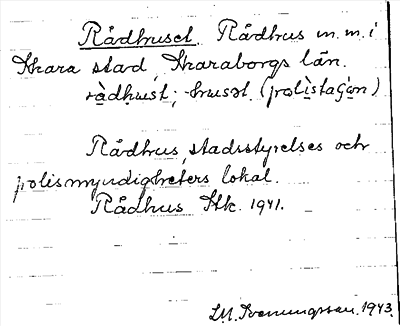 Rådhuset. Rådhus m.m. i
Skara stad, Skaraborgs län.
rådhust; -huset. (polistaʃon)
Rådhus, stadsstyrelses och
polismyndigheters lokal.
Rådhus Stk. 1941.
Svenungsson. 1943.